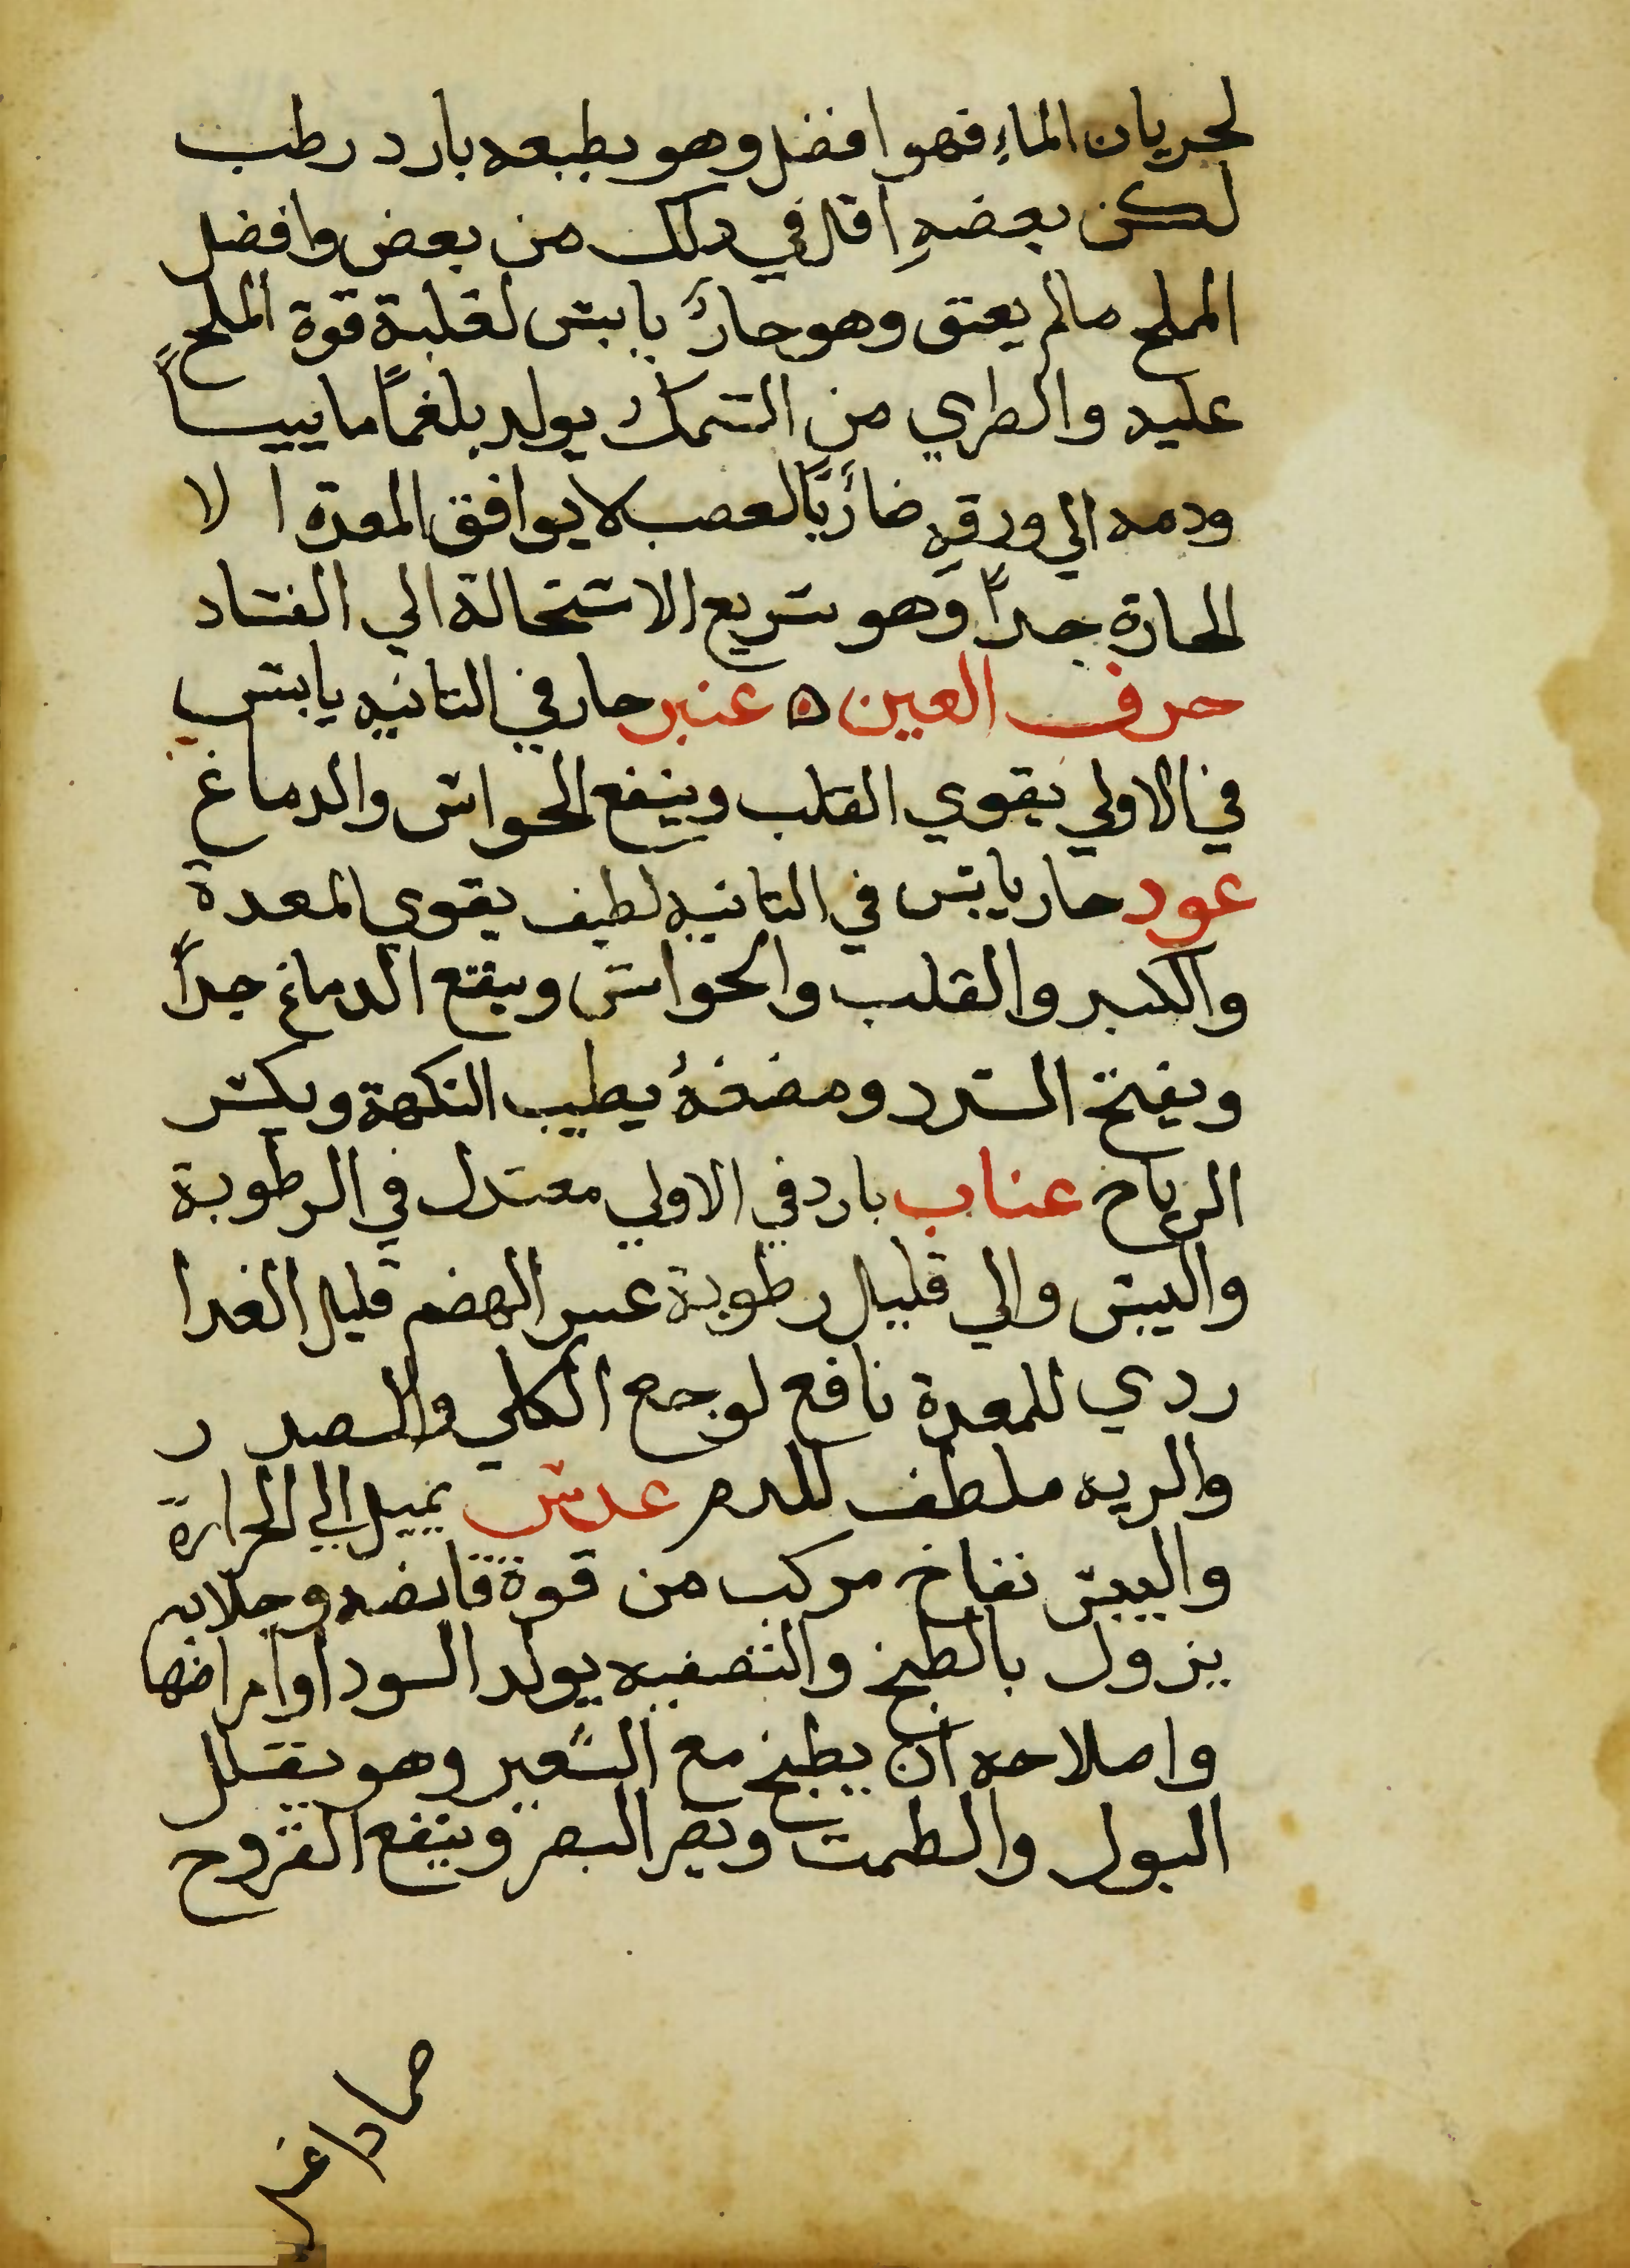 لجريان الماء فهو افضل وهو بطبعه بارد رطب
لكن بعضه اقل في دلك من بعض وافضل
المملح مالم يعتق وهو حار يابس لغلبة قوة الملح
عليه والطري من السمك يولد بلغماً ماييساً
ودمه الي ورقه ضارباً لعصب لا يوافق المعدة ا لا
الحارة جداً وهو سريع الاستحالة الي الفساد
حرف العين ۵ عنبر حار في التانيه يابس
في الاولي يقوي القلب وينفع الحواس والدماغ
عود حار يابس في التانيه لطيف يقوي المعدة
والكبد والقلب والحواس وينفع الدماغ جداً
ويفتح السدد ومضغهُ يطيب النكهة ويكسر
الرياح عناب بارد في الاولي معتدل في الرطوبة
واليبس والي قليل رطوبة عسر الهضم قليل الغدا
ردي للمعدة نافع لوجع الكلي والصدر
والريه ملطف للدم عدس يميل الي الحرارة
واليبس نفاخ مركب من قوة قابضه وجلايه
يزول بالطبخ والتصفيه يولد السودا وامراضها
واصلاحه ان يطبخ مع الشعير وهو يقلل
البول والطمت ويضر البصر وينفع القروح